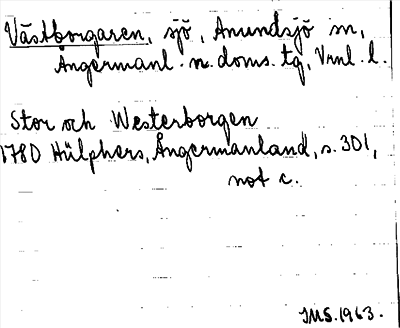 Västborgaren, sjö, Anundsjö sn,
Ångermanl. n. doms. tg, Vrnl. l.
Stor och Westerborgen
1780 Hülphers, Ångermanland, s. 301,
not c.
IMS. 1963.